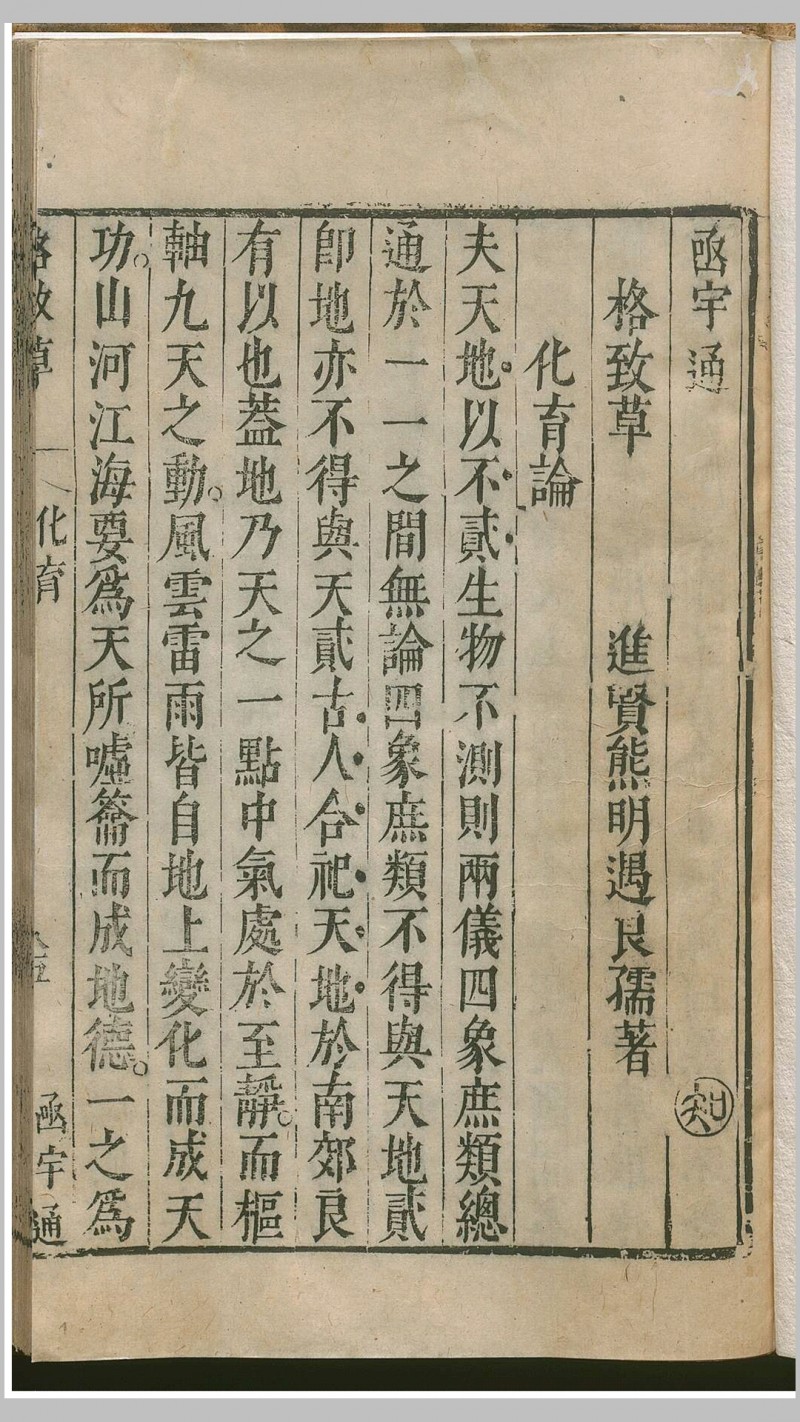 函宇通 知
格致草 進賢熊明遇良孺著
化育論
夫天地以不貳生物不測則兩儀四象庶類總
通於一一之間無論四象庶類不得與天地貳
卽地亦不得與天貳古人合祀天地於南郊良
有以也蓋地乃天之一點中氣處於至靜。而樞
軸九天之動。風雲雷雨皆自地上變化而成天
功。山河江海要爲天所噓籥而成地德。一之爲
格致草 化育 函宇通